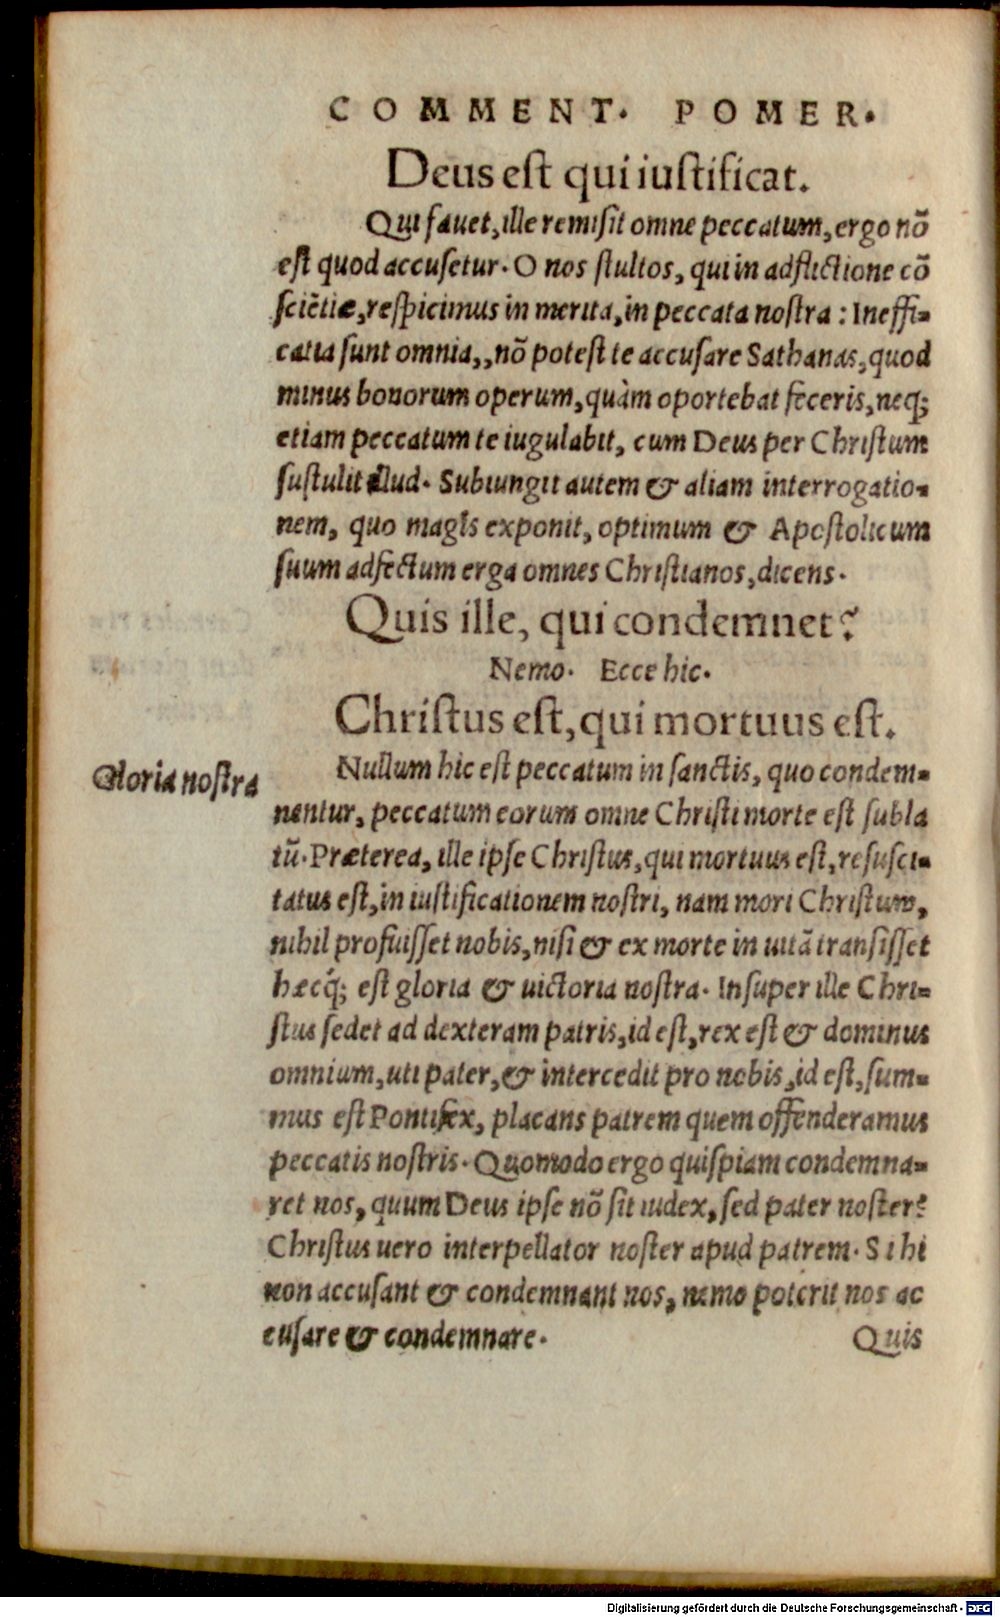 COMMENT. POMER.
Deus eſt qui iuſtificat.
Qui fauet, ille remiſit omne peccatum, ergo nō
eſt quod accuſetur. O nos ſtultos, qui in adflictione cō
ſciētiæ, reſpicimus in merita, in peccata noſtra : Ineffi-
catia ſunt omnia,, nō poteſt te accuſare Sathanas, quod
minus bonorum operum, quàm oportebat feceris, neq;
etiam peccatum te iugulabit, cum Deus per Chriſtum
ſuſtulit illud. Subiungit autem & aliam interrogatio-
nem, quo magis exponit, optimum & Apoſtolicum
ſuum adfectum erga omnes Chriſtianos, dicens.
Quis ille, qui condemnet?
Nemo. Ecce hic.
Chriſtus eſt, qui mortuus eſt.
Gloria noſtra
Nullum hic eſt peccatum in ſanctis, quo condem-
nentur, peccatum eorum omne Chriſti morte eſt ſubla
tū. Præterea, ille ipſe Chriſtus, qui mortuus eſt, reſuſci-
tatus eſt, in iuſtificationem noſtri, nam mori Chriſtum,
nihil profuiſſet nobis, niſi & ex morte in uitā tranſiſſet
hæcq́; eſt gloria & uictoria noſtra. Inſuper ille Chri-
ſtus ſedet ad dexteram patris, id eſt, rex eſt & dominus
omnium, uti pater, & intercedit pro nobis, id eſt, ſum-
mus eſt Pontifex, placans patrem quem offenderamus
peccatis noſtris. Quomodo ergo quiſpiam condemna-
ret nos, quum Deus ipſe nō ſit iudex, ſed pater noſter?
Chriſtus uero interpellator noſter apud patrem. Si hi
non accuſant & condemnant nos, nemo poterit nos ac
cuſare & condemnare.
Quis
Digitalisierung gefördert durch die Deutsche Forschungsgemeinschaft - DFG